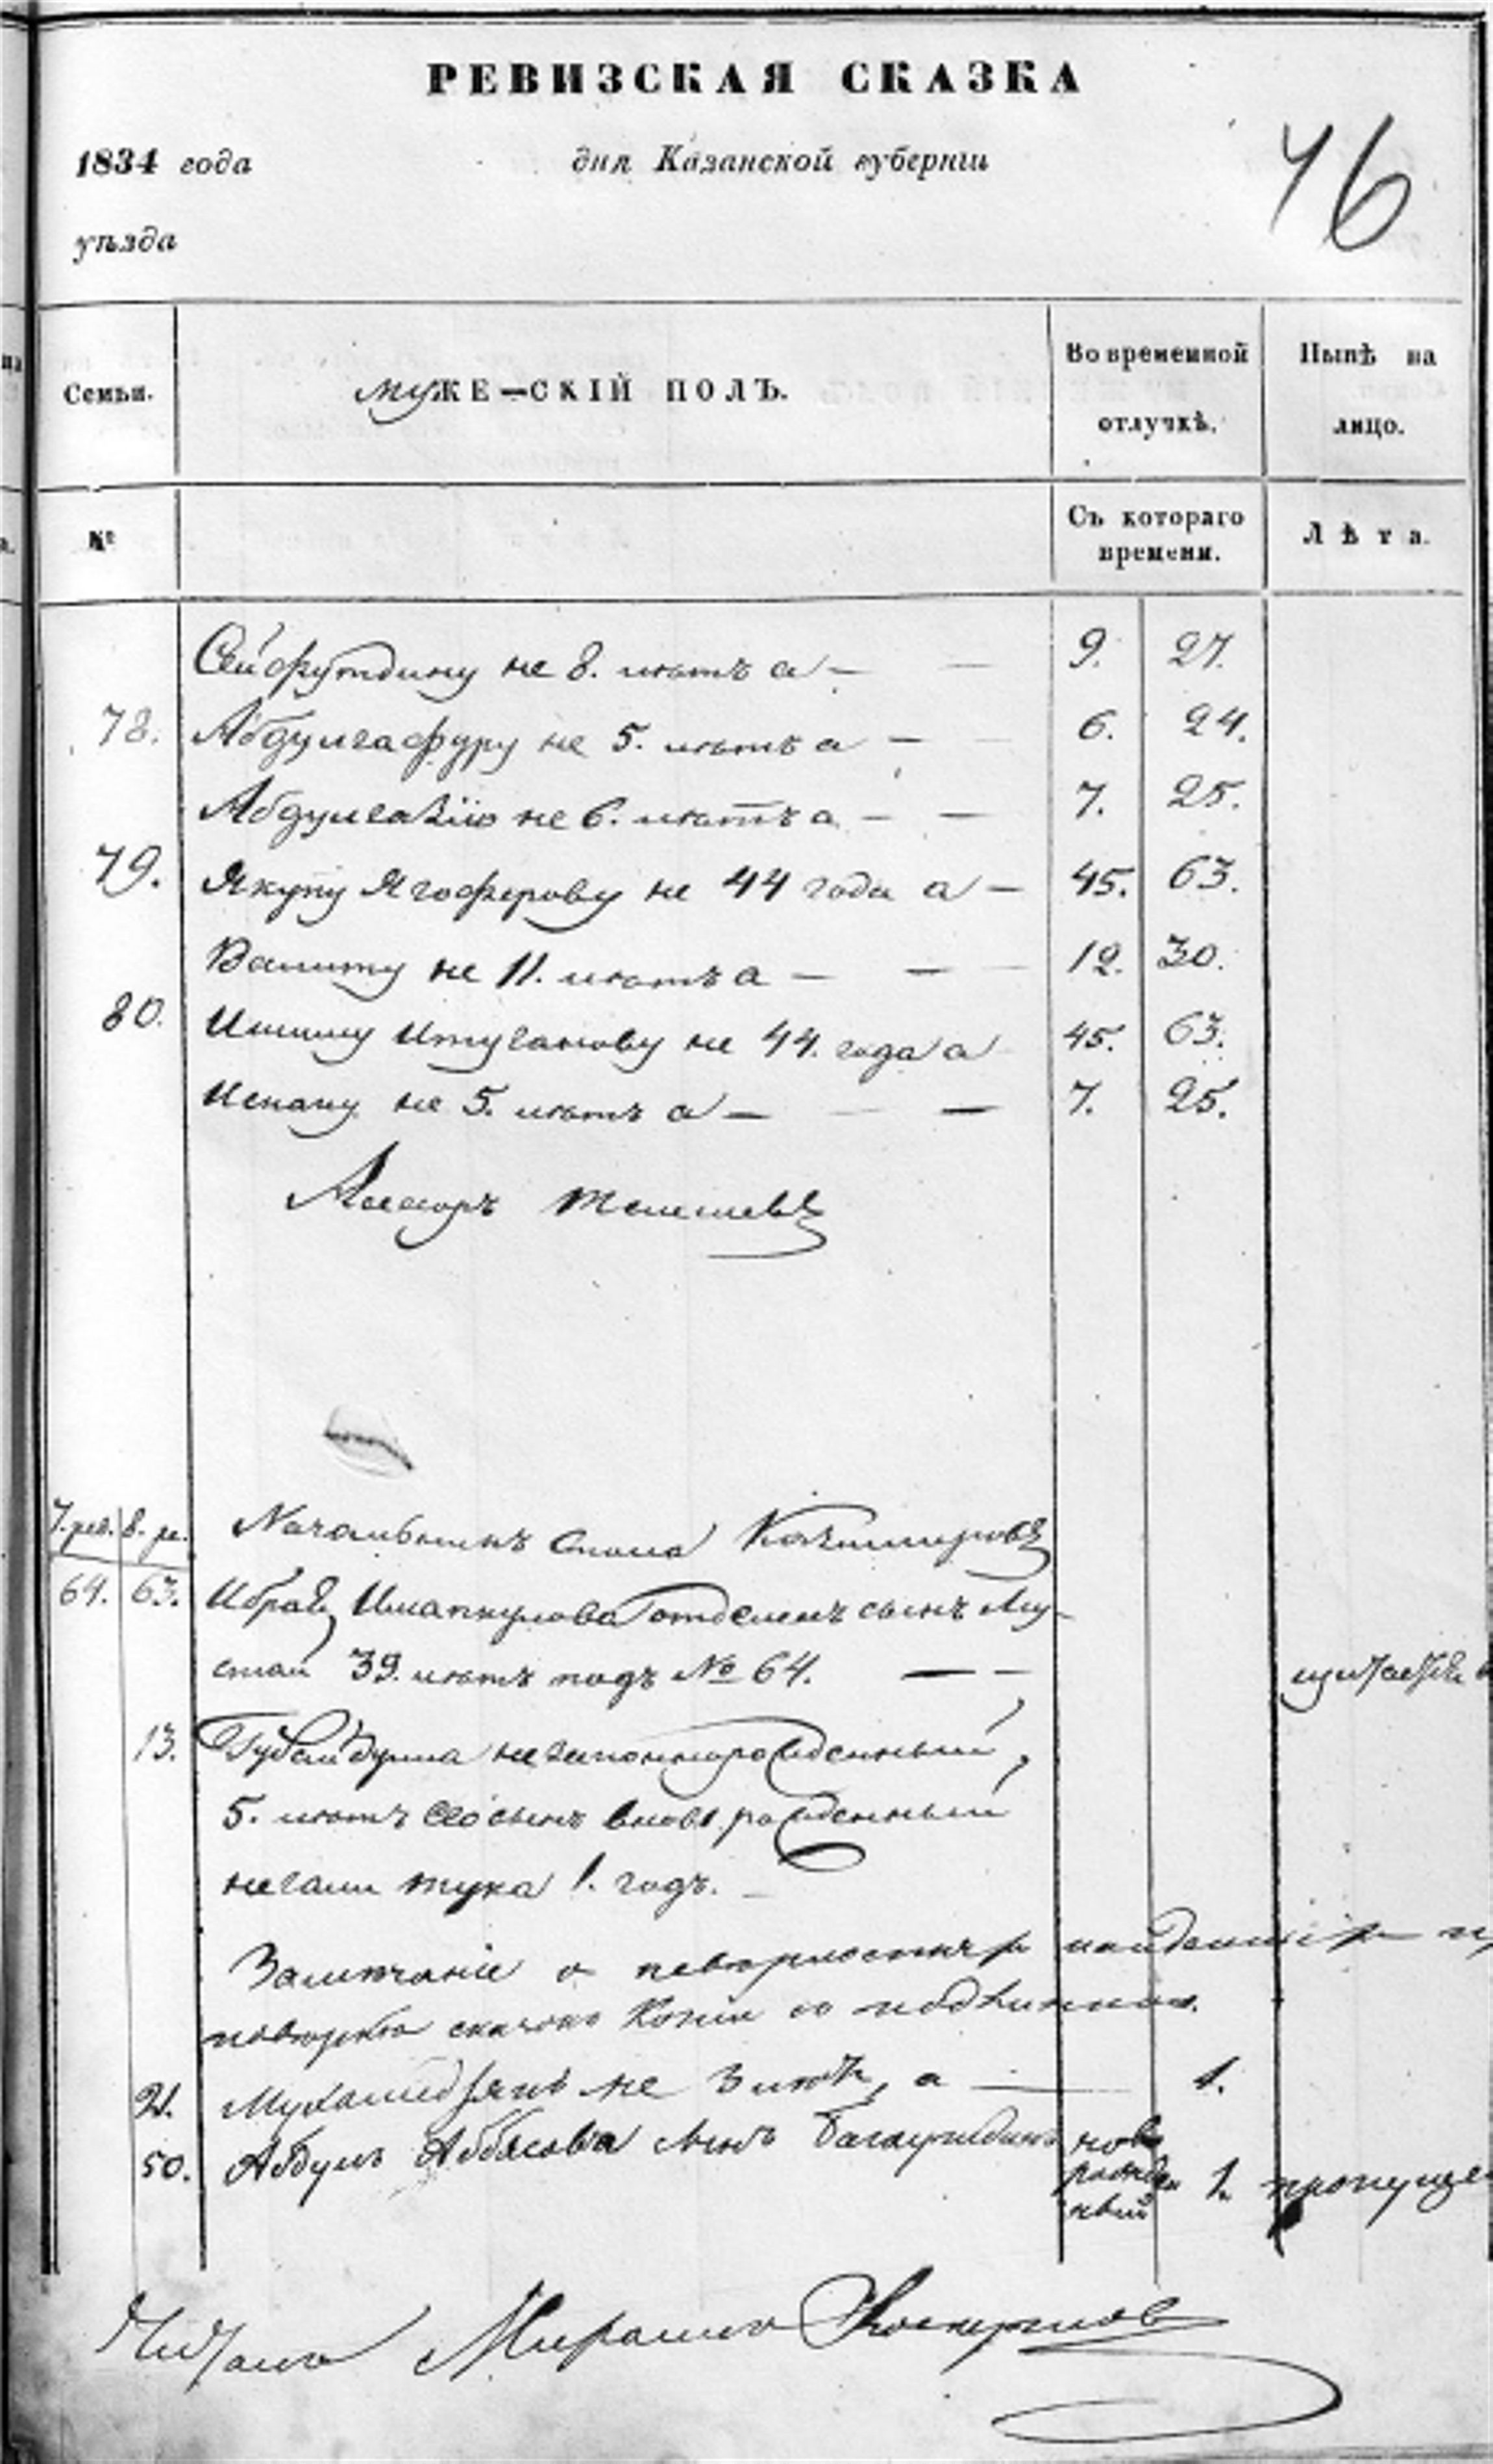 РЕВИЗСКАЯ СКАЗКА
1834 года дня Казанской губерніи
76
уѣзда
Семьи. МУЖЕ—СКІЙ ПОЛЪ. Во временной отлучкѣ. Нынѣ на лицо.
№ Съ котораго времени. Лѣта.
Сейфутдину не 8. лѣтъ а — — 9. 27.
78. Абдулгафуру не 5. лѣтъ а — — 6. 24.
Абдулгазію не 6. лѣтъ а — — 7. 25.
79. Якупу Ягоферову не 44 года а — 45. 63.
Валиту не 11. лѣтъ а — — 12. 30.
80. Ишиму Итуганову не 44. года а 45. 63.
Исхаку не 5. лѣтъ а — — 7. 25.
Ассесоръ
7. рев. 8. ре. Начальникъ стола
64. 63. Ибрая Иманкулова отделенъ сынъ Му-
стай 39. лѣтъ подъ № 64. — —
13. Губейдулла незаконнорожденный,
5. лѣтъ его сынъ вновь рожденный
1. годъ.
Замѣчаніе о невѣрностяхъ найденныхъ
повѣркѣ сказокъ Копіи съ подлинной.
21. Мухамедзянъ не 3 лѣтъ, а — 1.
50. Абдулъ Аббясова сынъ Багаутдинъ ново рожден ный 1. пропущен
Читалъ